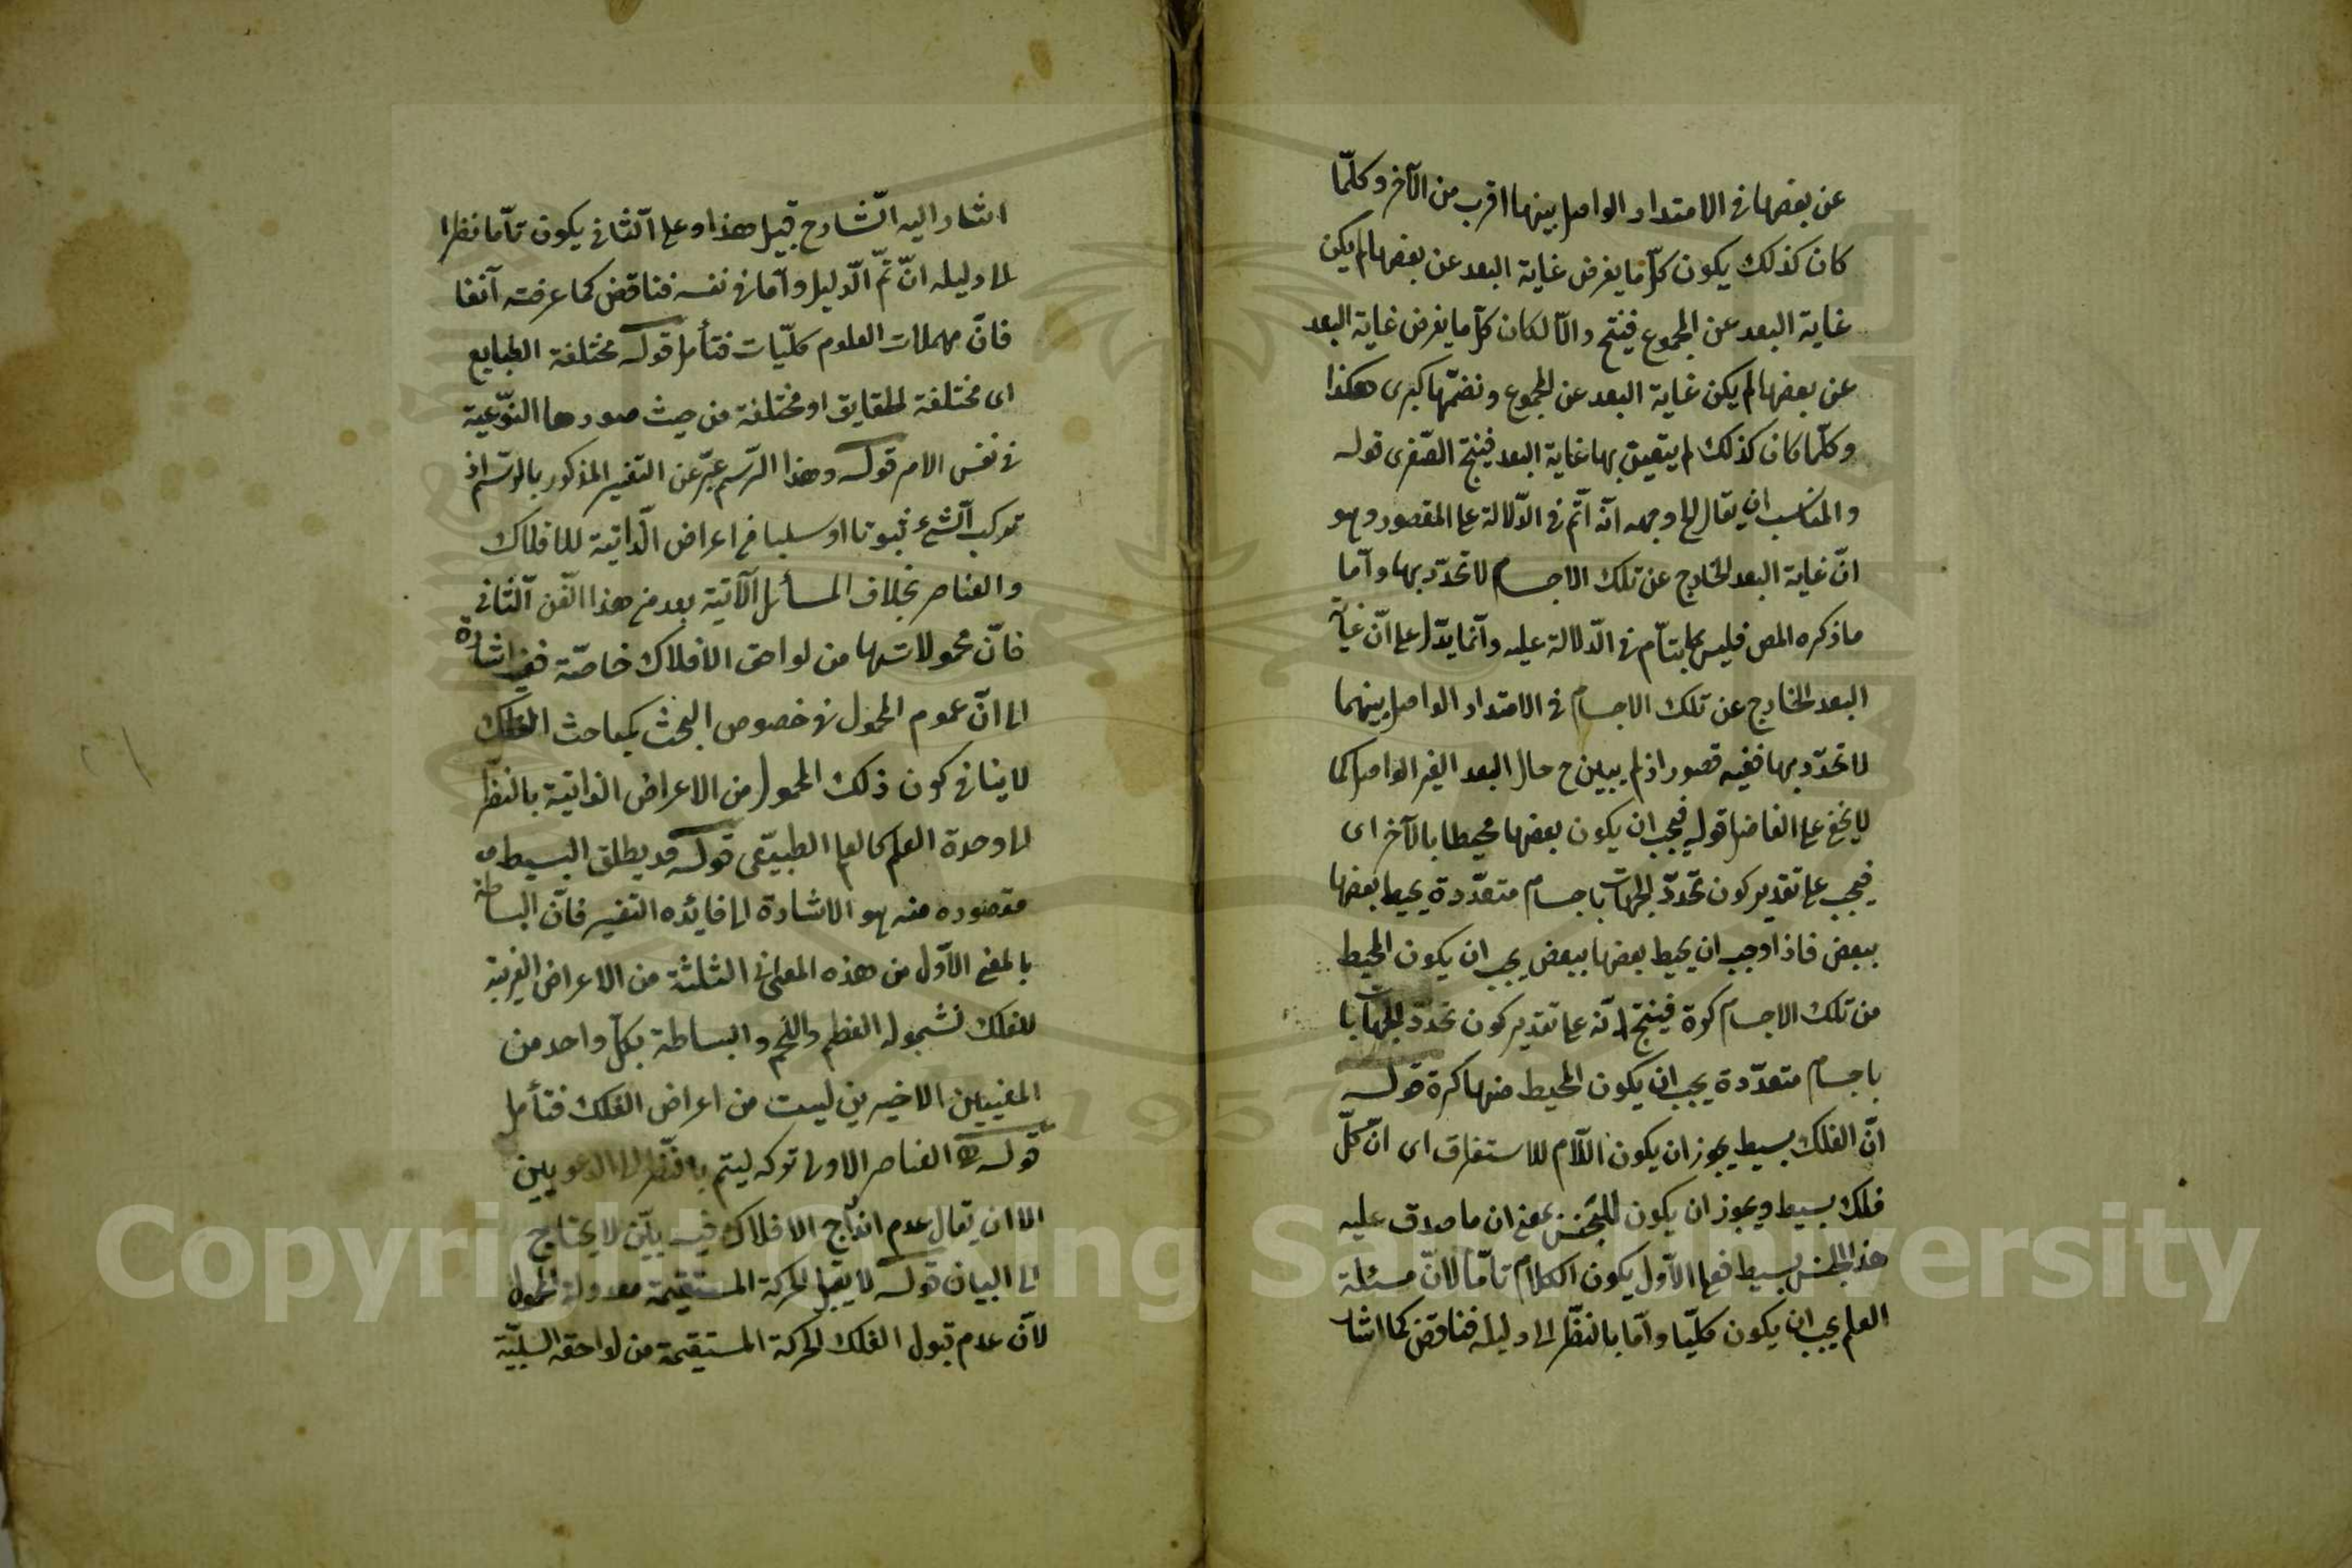 عن بعضها فى الامتداد الواصل بينها اقرب من الآخر وكلّما
كان كذلك يكون كلّ ما يفرض غاية البعد عن بعضها لم يكن
غاية البعد عن المجموع فينتج والّا لكان كلّ ما يفرض غاية البعد
عن بعضها لم يكن غاية البعد عن المجموع ونضمّها كبرى هكذا
وكلّما كان كذلك لم يتعين بها غاية البعد فينتج الصّغرى قوله
والمناسب ان يقال الخ وجهه انّه اتّم فى الدّلالة على المقصود وهو
انّ غاية البعد الخارج عن تلك الاجسام لا تحدّد بها وامّا
ما ذكره المص فليس بتامّ فى الدّلالة عليه وانّما يدّل على انّ غاية
البعد الخارج عن تلك الاجسام فى الامتداد الواصل بينهما
لا تحدّد بها ففيه قصور اذ لم يبين ح حال البعد الغير الواصل كما
لا يخفى على الفاضل قوله فيجب ان يكون بعضها محيطا بالآخر اى
فيجب على تقدير كون تحدّد الجهات باجسام متعدّدة يحيط بعضها
ببعض فاذا وجب ان يحيط بعضها ببعض يجب ان يكون المحيط
من تلك الاجسام كرة فينتج انّه على تقدير كون تحدّد الجهات با
باجسام متعدّدة يجب ان يكون المحيط منها كرة قوله
انّ الفلك بسيط يجوز ان يكون اللّام للاستغراق اى انّ كلّ
فلك بسيط ويجوز ان يكون للجنس بمعنى ان ما صدق عليه
هذا الجنس بسيط فعلى الاّول يكون الكلام تامّا لانّ مسئلة
العلم يجب ان يكون كلّيا وامّا بالنظّر الى دليله فناقض كما اشار
اشار اليه الشّارح قبيل هذا وعلى الثّانى يكون تامّا نظرا
الى دليله انّ تمّ الدّليل وامّا فى نفسه فناقض كما عرفته آنفا
فانّ مهملات العلوم كلّيات فتأمل قوله مختلفة الطبايع
اى مختلفة الحقايق او مختلفة من حيث صورها النوّعية
فى نفس الامر قوله وهذا الرّسم عبّر عن التفسير المذكور بالرّسم اذ
تركب الشّئ ثبوتا او سلبا من اعراض الذّاتية للافلاك
والعناصر بخلاف المسائل الآتية بعد من هذا الفّن الثّانى
فانّ محمولاتها من لواحق الافلاك خاصّة ففى اشارة
الى انّ عموم المحمول فى خصوص البحث كمباحث الفلك
لا ينافى كون ذلك المحمول من الاعراض الذاتية بالنظّر
الى وحدة العلم كالعلم الطبيعّى قوله قد يطلق البسيط
مقصوده منه هو الاشارة الى فائده التفسير فانّ البساطة
بالمعنى الاّول من هذه المعانى الثلثة من الاعراض الغريبة
للفلك لشموله العظم واللحم والبساطة بكلّ واحد من
المعنيين الاخيرين ليست من اعراض الفلك فتأمل
قوله العناصر الاولى تركه ليتم بالنّظر الى الدعويين
الا ان يقال عدم اندراج الافلاك فيه بيّن لا يحتاج
الى البيان قوله لا يقبل الحركة المستقيمة معدولة المحمول
لانّ عدم قبول الفلك الحركة المستقيمة من لواحقه السلبيّة
Copyright King Saud University
1957